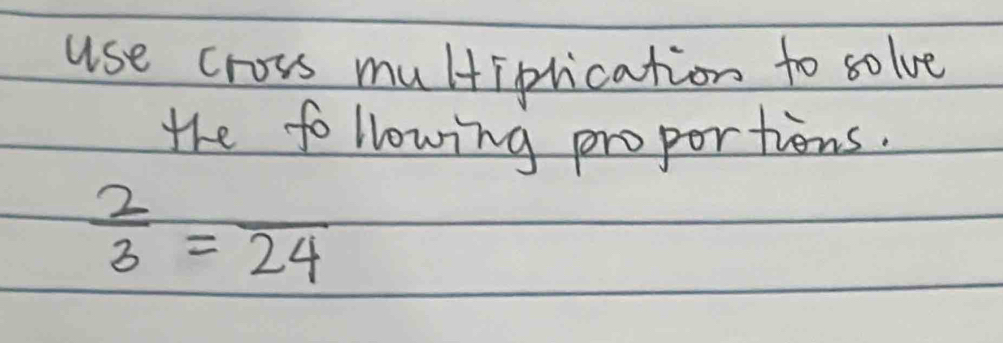 use cross multiplication to solve
the following proportions.
2/3 = /24